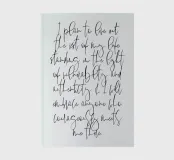 I plan to live out
the rest of my life
standing in the light
of vulnerability and
authenticity & I will
embrace anyone who
courageously meets
me there